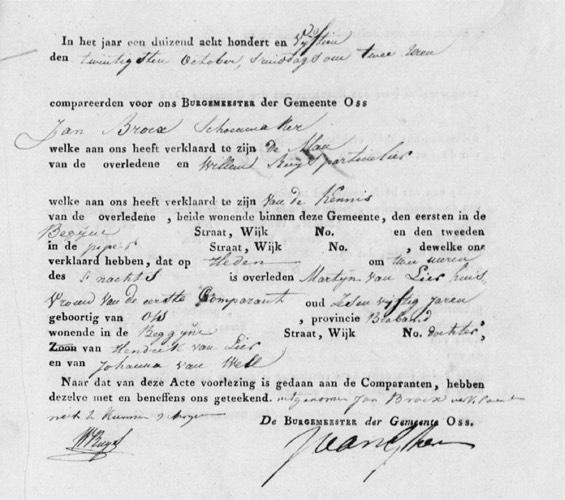 In het jaar een duizend acht hondert en Vijftien
den twintigsten October, smiddags om twee uren
compareerden voor ons BURGEMEESTER der Gemeente Oss
Jan Broex Schoenmaker
welke aan ons heeft verklaard te zijn de Man
van de overledene en Willem Ruijs particulier
welke aan ons heeft verklaard te zijn van de Kennis
van de overledene, beide wonende binnen deze Gemeente, den eersten in de
Begijne Straat, Wijk No. en den tweeden
in de Straat, Wijk No. , dewelke ons
verklaard hebben, dat op Heden om uren
des s'nachts is overleden Martijn van Lier huis
vrouw van de eerste Comparant oud Zesen vijftig Jaren
geboortig van Oss , provincie Braband ,
wonende in de Beggijne Straat, Wijk No. dochter,
Zoon van Hendrik van Lier
en van Johanna van Well
Naar dat van deze Acte voorlezing is gedaan aan de Comparanten, hebben
dezelve met en beneffens ons geteekend. uitgenomen Jan Broex
niet te kunnen
De BURGEMEESTER der Gemeente Oss.
WRuijs